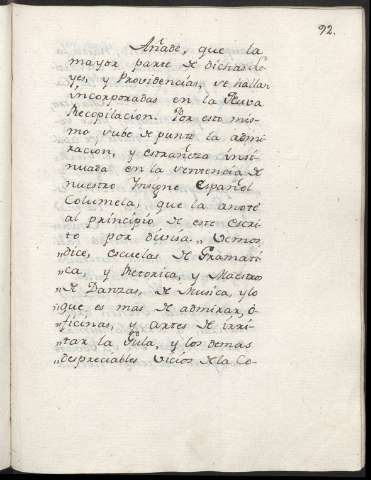 92.
Añade, que la
mayor parte de dichas Le-
yes, y Providencias, se hallan
incorporadas en la Nueva
Recopilacion. Por esto mis-
mo sube de punto la admi-
racion, y estrañeza insi-
nuada en la sentencia de
nuestro Insigne Español
Columela, que la anoté
al principio de este escri-
to por divisa. „ Vemos
„ dice, escuelas de Gramati-
„ ca, y Retorica, y Maestros
„ de Danzas, de Musica, y lo
„ que es mas de admirar, o-
„ ficinas, y artes de irri-
„ tar la Gula, y los demas
„ despreciables vicios de la Co-